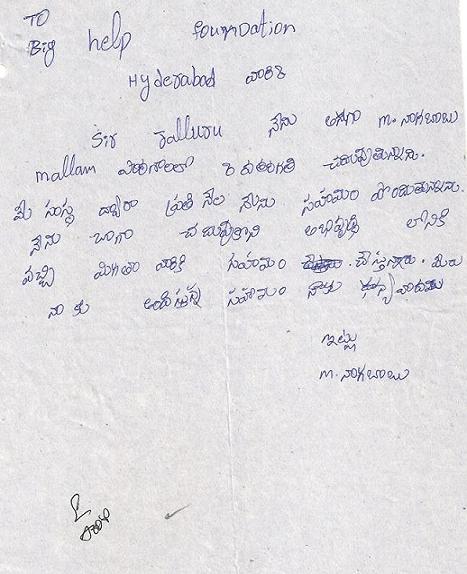 TO
Big help foundation
Hyderabad వారికి
Sir Jalluru నేను అనగా m. నాగబాబు
mallam పాఠశాలలో 8 వ తరగతి చదువుతున్నాను.
మీ సంస్థ ద్వారా ప్రతి నెల నేను సహాయం పొందుతున్నాను.
నేను బాగా చదువుకొని అభివృద్ధి లోనికి
వచ్చి మిగతా వారికి సహాయం చేస్తాను. మీరు
నా కు అందిస్తున్న సహాయం నాకు ధన్యవాదములు
ఇట్లు
m. నాగబాబు